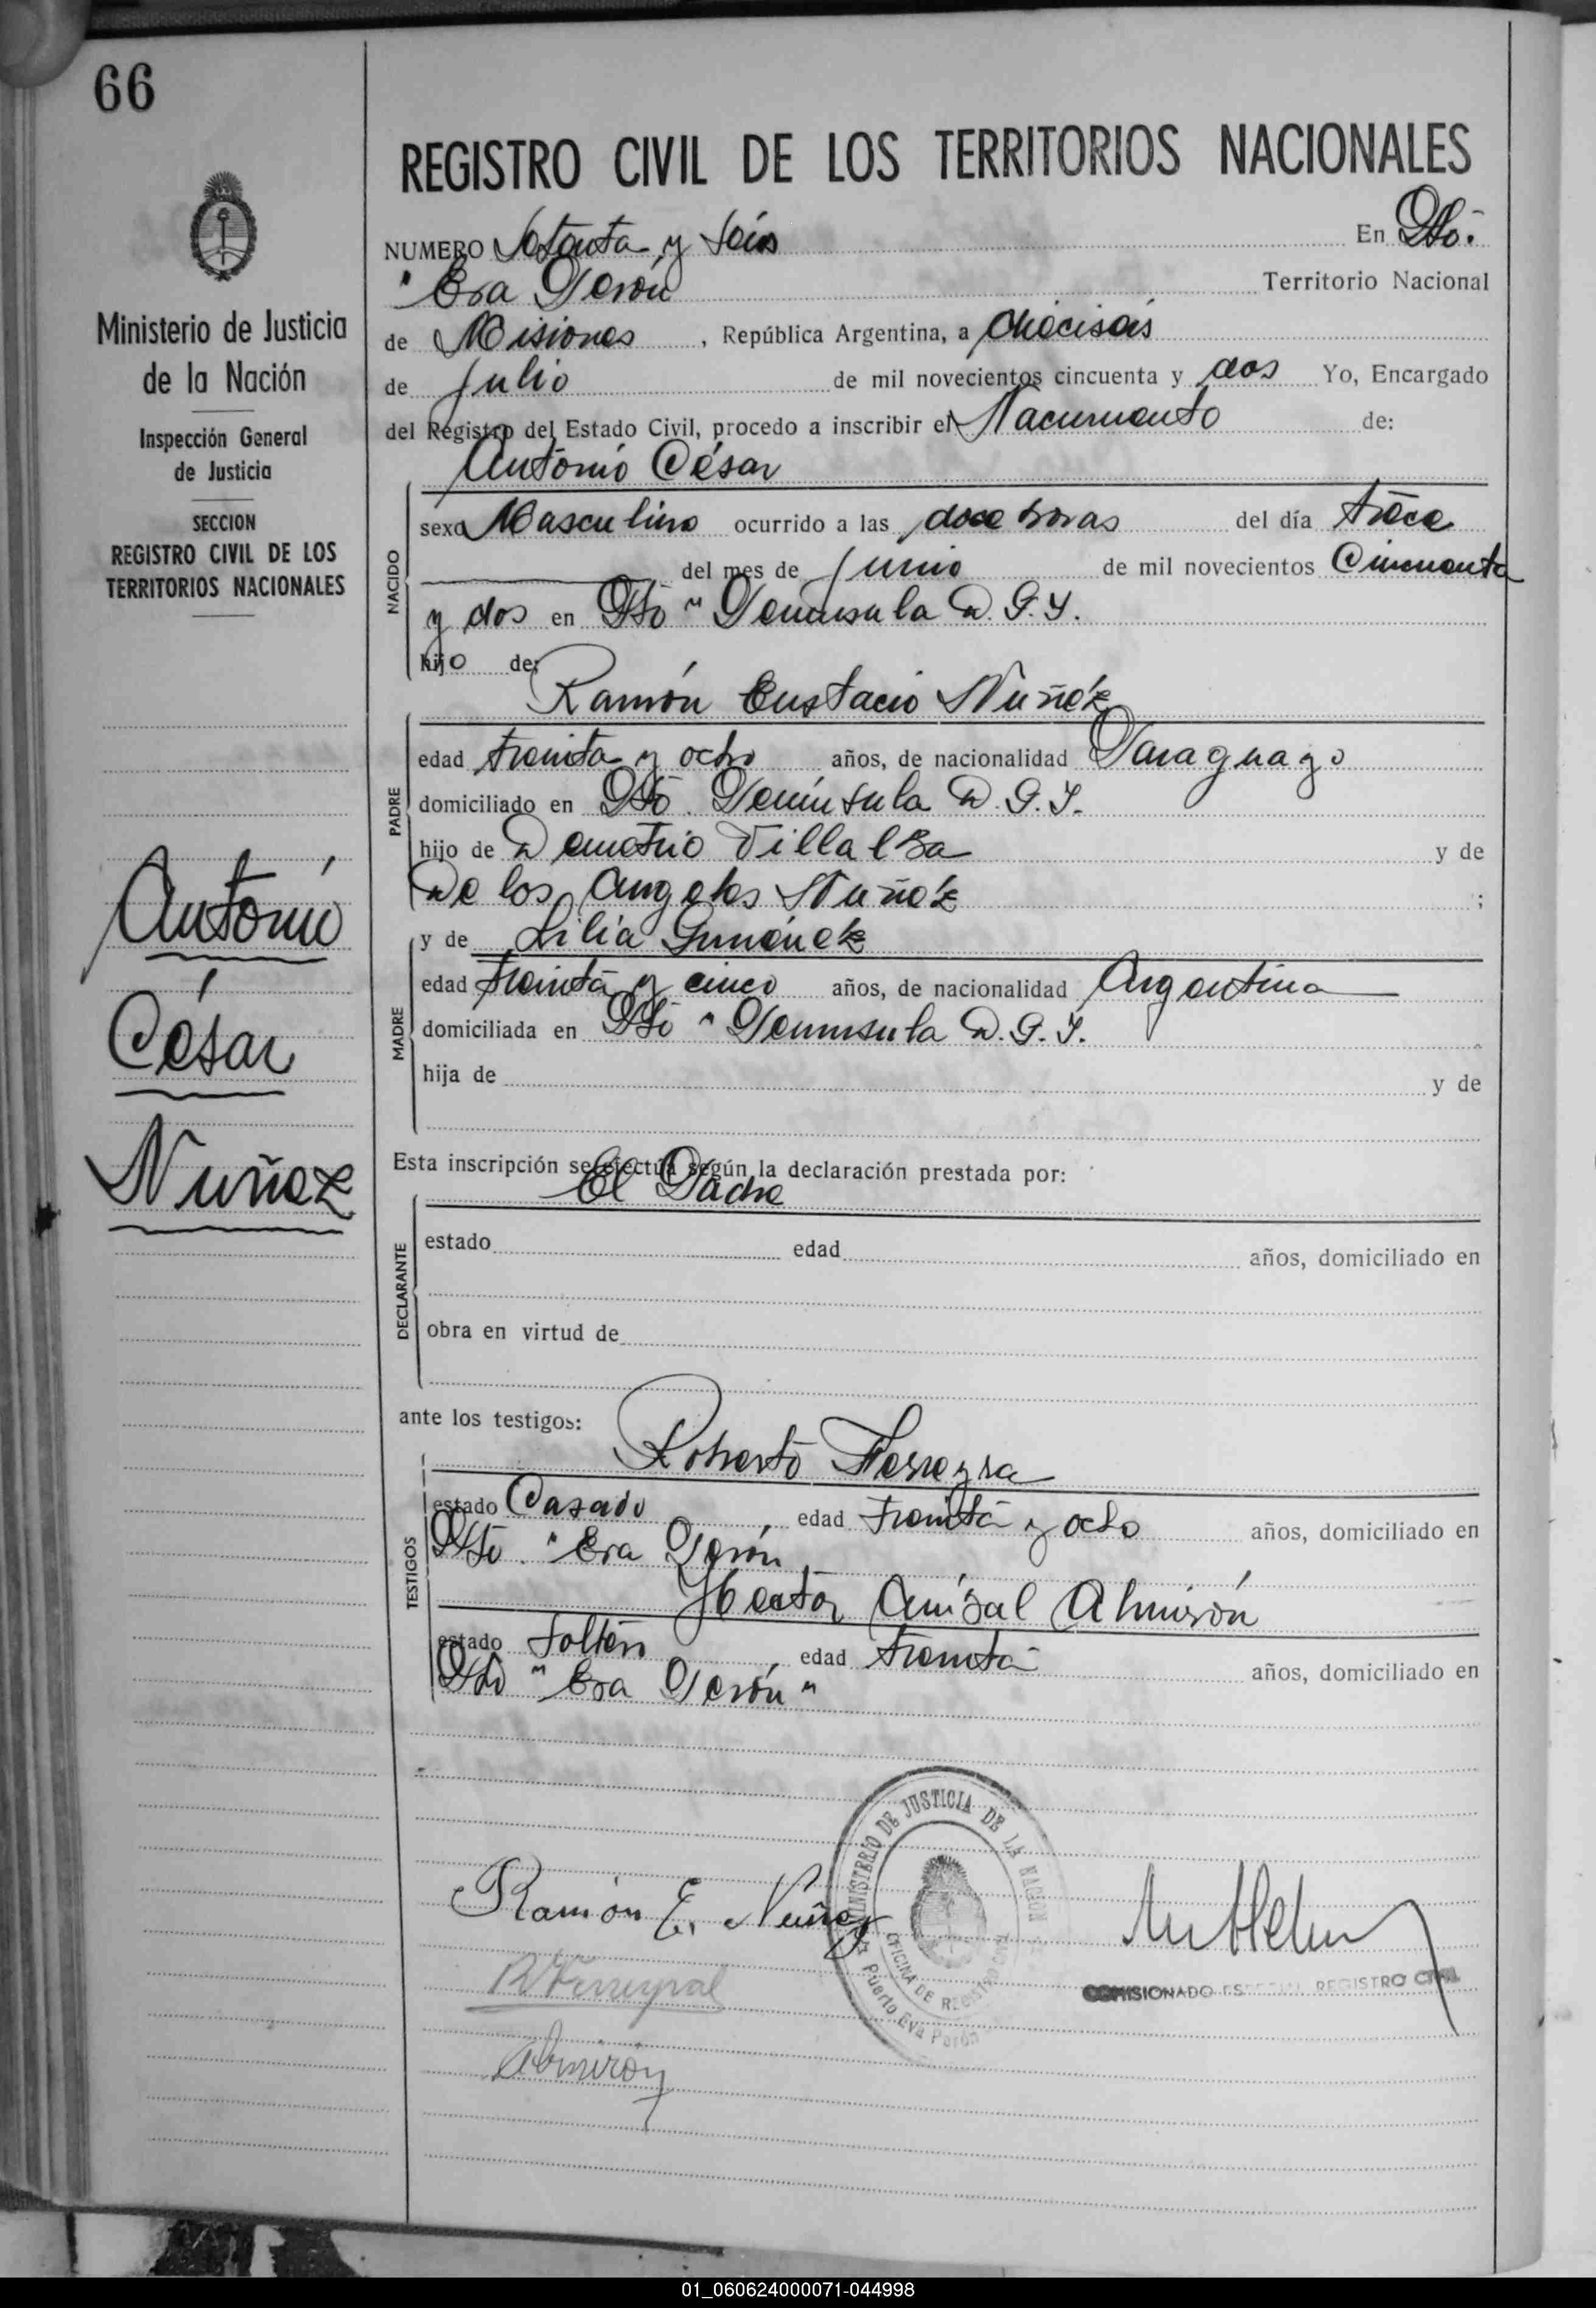 66
REGISTRO CIVIL DE LOS TERRITORIOS NACIONALES
NUMERO Setenta y Seis En Pto.
"Eva Perón Territorio Nacional
de Misiones, República Argentina, a dieciseis
de Julio de mil novecientos cincuenta y dos Yo, Encargado
del Registro del Estado Civil, procedo a inscribir el Nacimiento de:
Antonio César
NACIDO
sexo Masculino ocurrido a las doce horas del día trece
del mes de Junio de mil novecientos Cincuenta
y dos en Pto " Península D. G. Y.
hijo de:
Ramón Eustacio Nuñéz
PADRE
edad treinta y ocho años, de nacionalidad Paraguayo
domiciliado en Pto. Península D. G. Y.
hijo de Demetrio Villalba y de
De los Angeles Nuñéz ;
y de Lilia Giménez
MADRE
edad treinta y cinco años, de nacionalidad Argentina
domiciliada en Pto " Península D. G. Y.
hija de y de
Esta inscripción se efectúa según la declaración prestada por:
El Padre
DECLARANTE
estado edad años, domiciliado en
obra en virtud de
ante los testigos:
Roberto Ferreyra
TESTIGOS
estado Casado edad treinta y ocho años, domiciliado en
Pto. "Eva Perón
Hector Anibal Almirón
estado soltero edad treinta años, domiciliado en
Pto "Eva Perón"
Ministerio de Justicia
de la Nación
Inspección General
de Justicia
SECCION
REGISTRO CIVIL DE LOS
TERRITORIOS NACIONALES
Antonio
César
Nuñez
Ramón E. Nuñez
Almirón
MINISTERIO DE JUSTICIA DE LA NACION
OFICINA DE REGISTRO CIVIL
Puerto Eva Perón
COMISIONADO ESPECIAL REGISTRO CIVIL
01_060624000071-044998